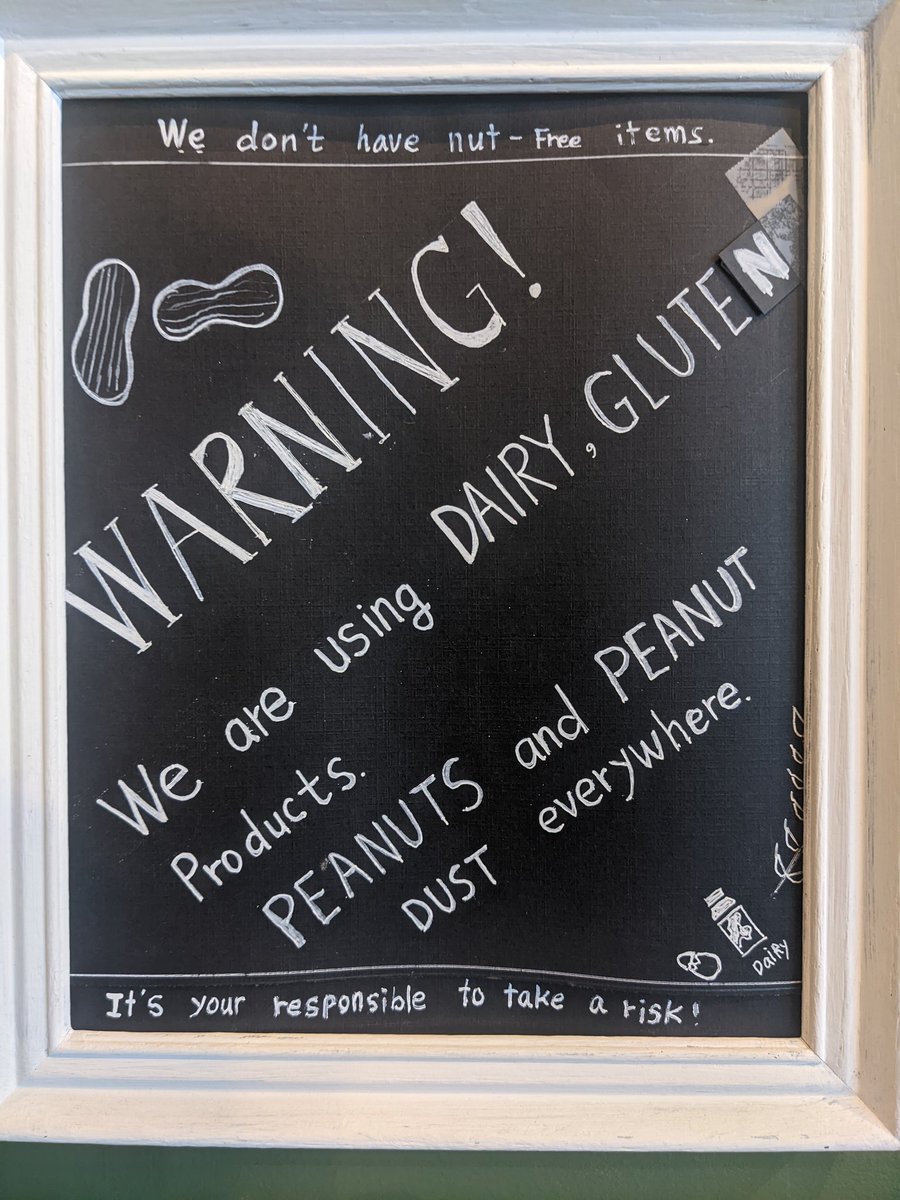 We don't have nut-Free items.
WARNING!
We are using DAIRY, GLUTEN
Products.
PEANUTS and PEANUT
DUST everywhere.
Dairy
It's your responsible to take a risk!